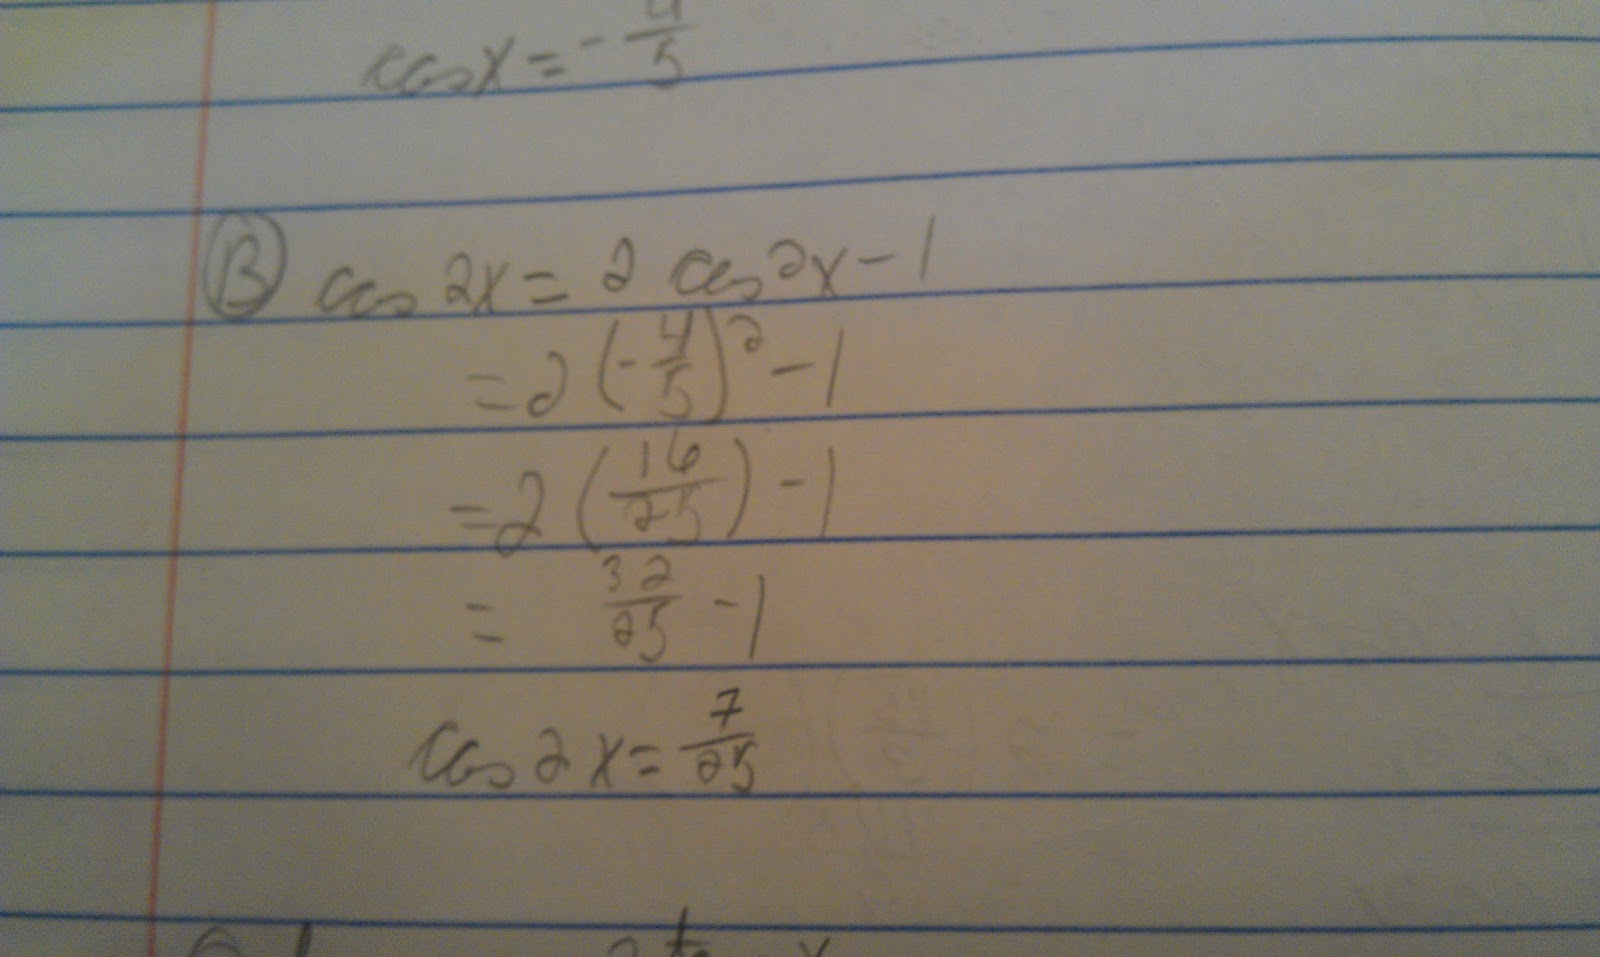 cos x = - 4/5
B cos 2x = 2 cos²x - 1
= 2 (- 4/5)² - 1
= 2 (16/25) - 1
= 32/25 - 1
cos 2x = 7/25